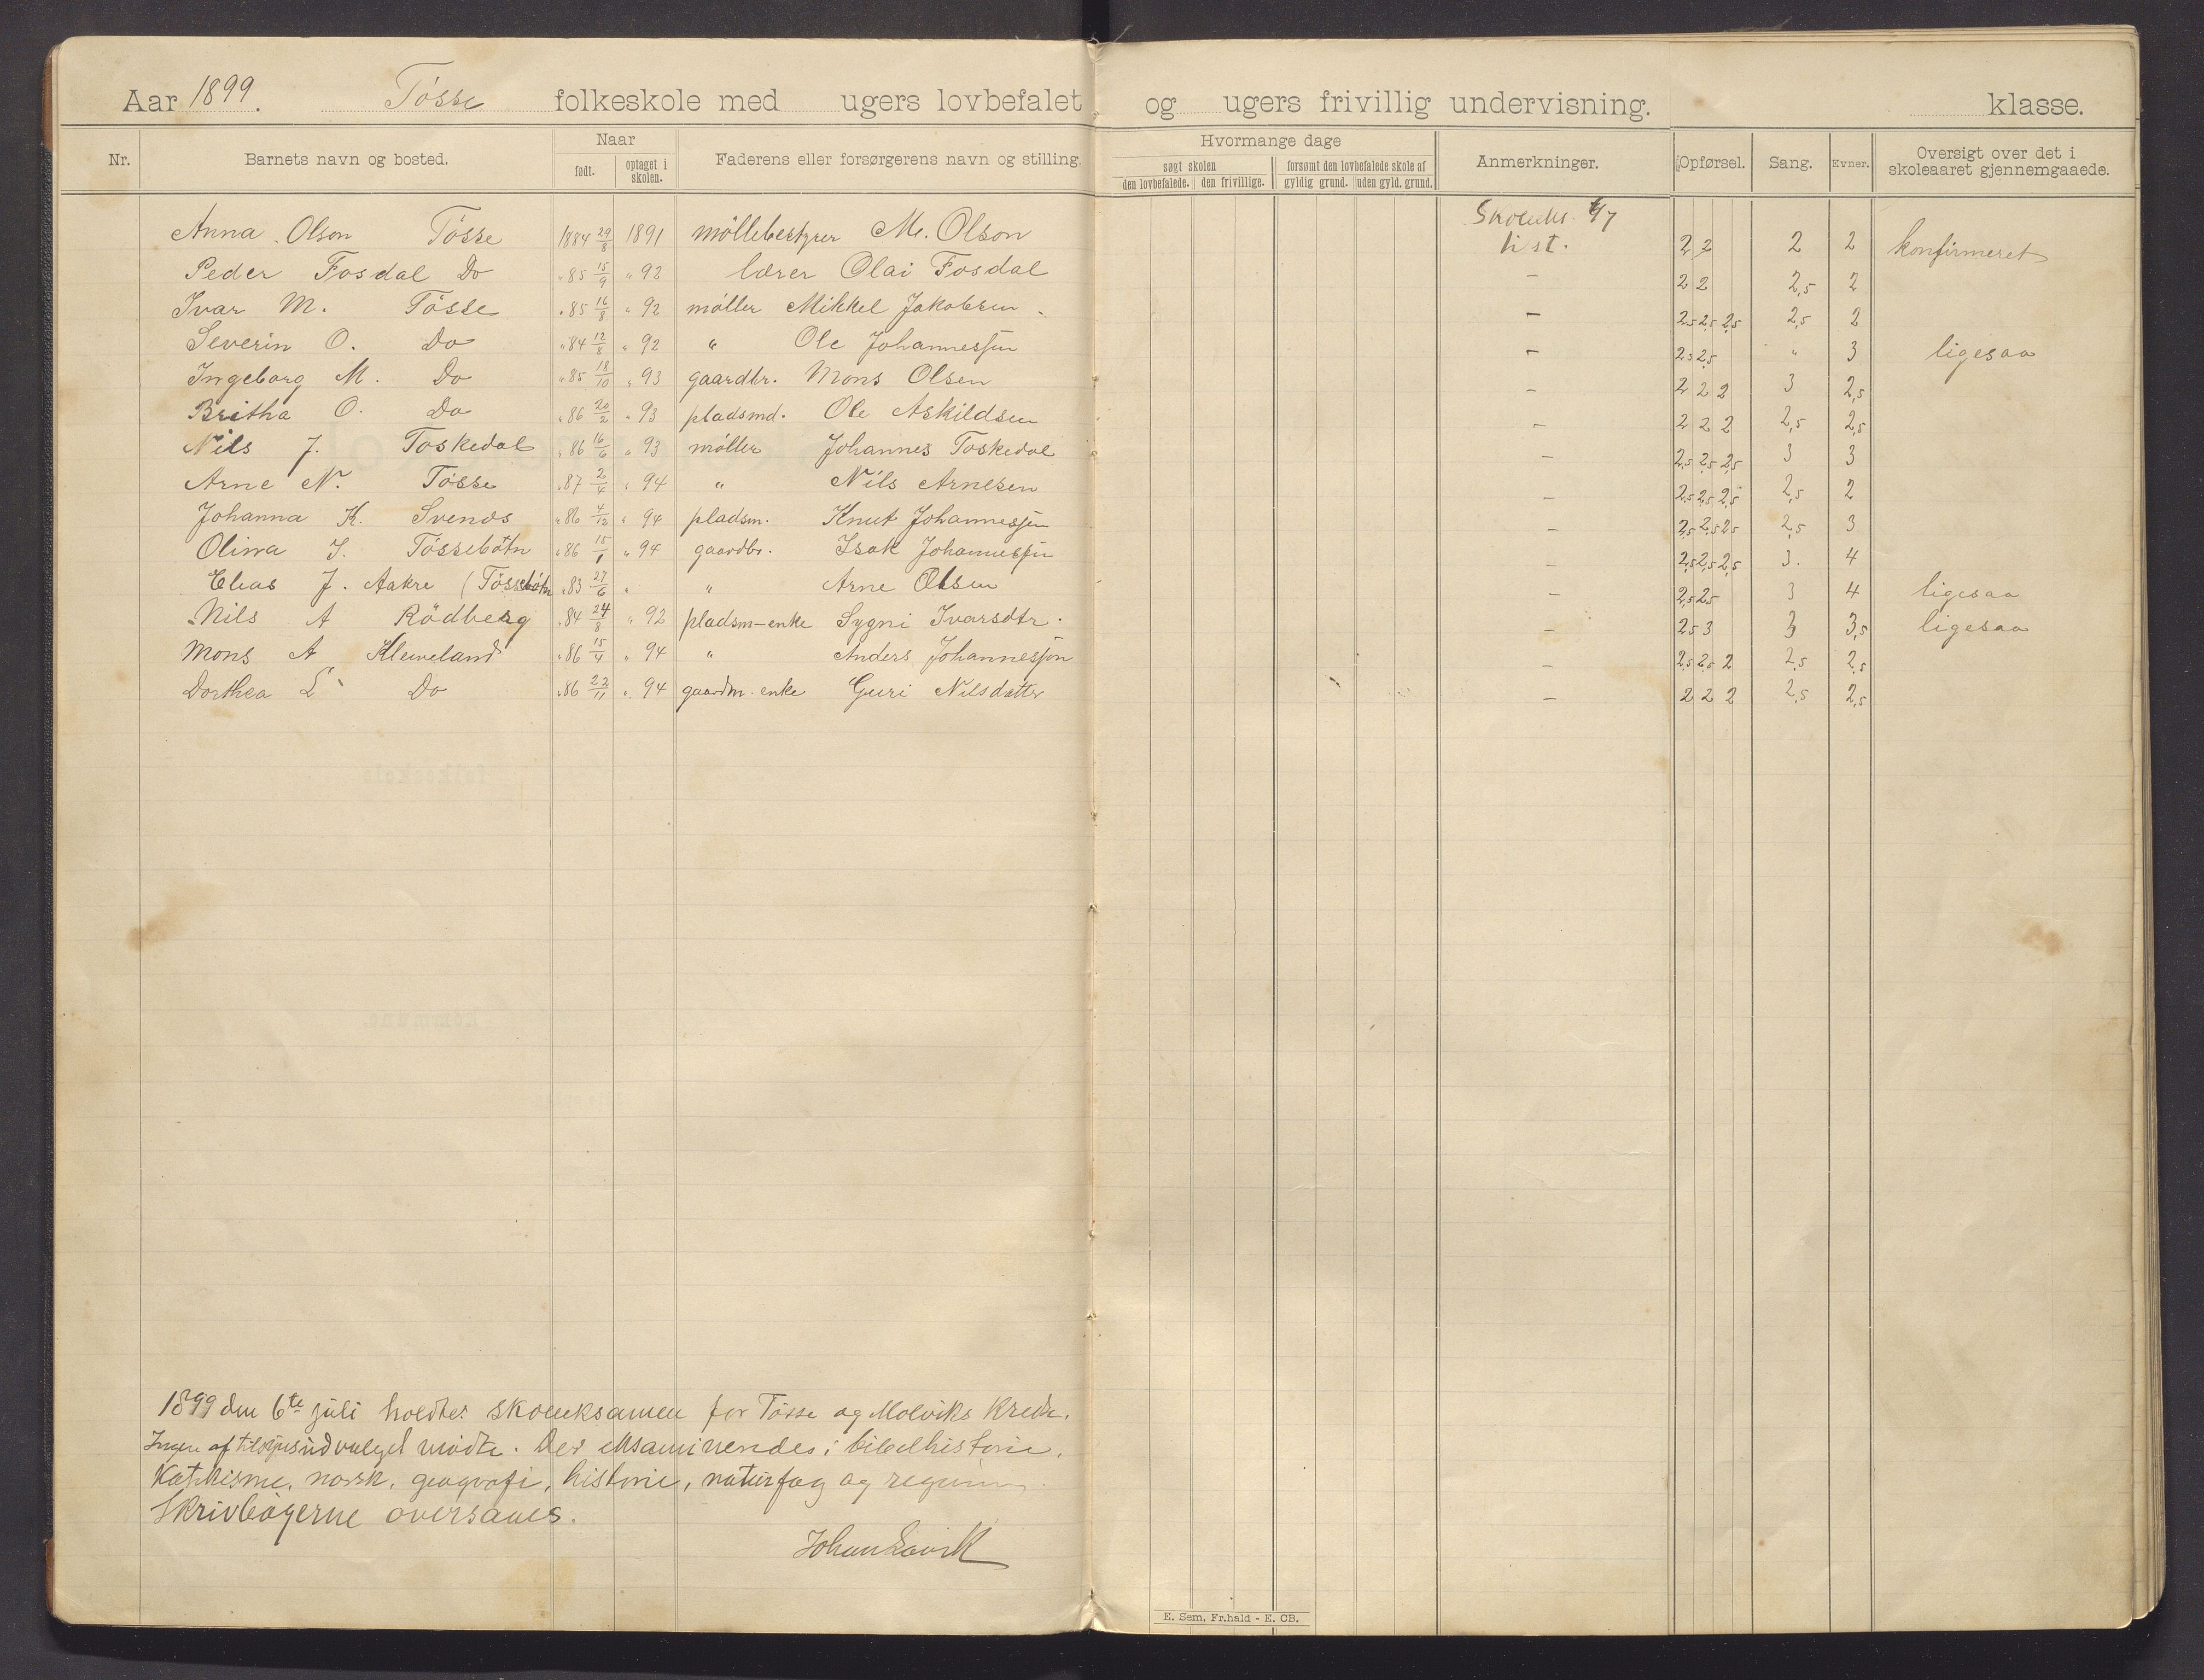 Aar 1899. Tösse folkeskole med ugers lovbefalet og ugers frivillig undervisning. klasse.
Nr. Barnets navn og bosted. Naar født. optaget i skolen. Faderens eller forsørgerens navn og stilling. Hvormange dage søgt skolen den lovbefalede. den frivillige. forsømt den lovbefalede skole af gyldig grund. uden gyld. grund. Anmerkninger. Opførsel. Sang. Evner. Oversigt over det i skoleaaret gjennemgaaede.
Anna Olson Tösse 1884 29/8 1891 möllebestyrer M. Olson 2 2 2 2 konfirmeret
Peder Fosdal Do " 85 15/9 " 92 lærer Olai Fosdal – 2 2 2,5 2
Ivar M. Tösse " 85 16/8 " 92 möller Mikkel Jakobsen – 2,5 2,5 2,5 2,5 2
Severin O. Do " 84 12/8 " 92 " Ole Johannessen – 2,5 2,5 " 3 ligesaa
Ingeborg M. Do " 85 18/10 " 93 gaardbr. Mons Olsen – 2 2 2 3 2,5
Britha O. Do " 86 20/2 " 93 pladsmd. Ole Askildsen – 2 2 2 2,5 2,5
Nils J. Toskedal " 86 16/6 " 93 möller Johannes Toskedal – 2,5 2,5 2,5 3 3
Arne N. Tösse " 87 2/4 " 94 " Nils Arnesen – 2,5 2,5 2,5 2,5 2
Johanna K. Svends " 86 4/12 " 94 pladsm. Knut Johannessen – 2,5 2,5 2,5 2,5 3
Olina I. Tössebötn " 86 15/1 " 94 gaardbr. Isak Johannessen – 2,5 2,5 2,5 3. 4
Elias J. Aakre (Tössebötn " 83 27/6 " " Arne Olsen – 2,5 2,5 3 4 ligesaa
Nils A Rödberg " 84 24/8 " 92 pladsm-enke Sygni Ivarsdtr. – 2,5 3 3 3,5 ligesaa
Mons A Kleiveland " 86 15/4 " 94 " Anders Johannessön – 2,5 2,5 2 2,5 2,5
Dorthea L Do " 86 22/11 " 94 gaardm. enke Guri Nilsdatter – 2 2 2 2,5 2,5
1899 den 6te juli holdtes skoleeksamen for Tösse og Molviks Kreds.
Ingen af tilsynsudvalget mödte. Der eksamineredes i bibelhistorie,
Katekisme, norsk, geografi, historie, naturfag og regning.
Skrivbögerne oversaaes.
Johan Lavik
E. Sem, Fr.hald - E. CB.